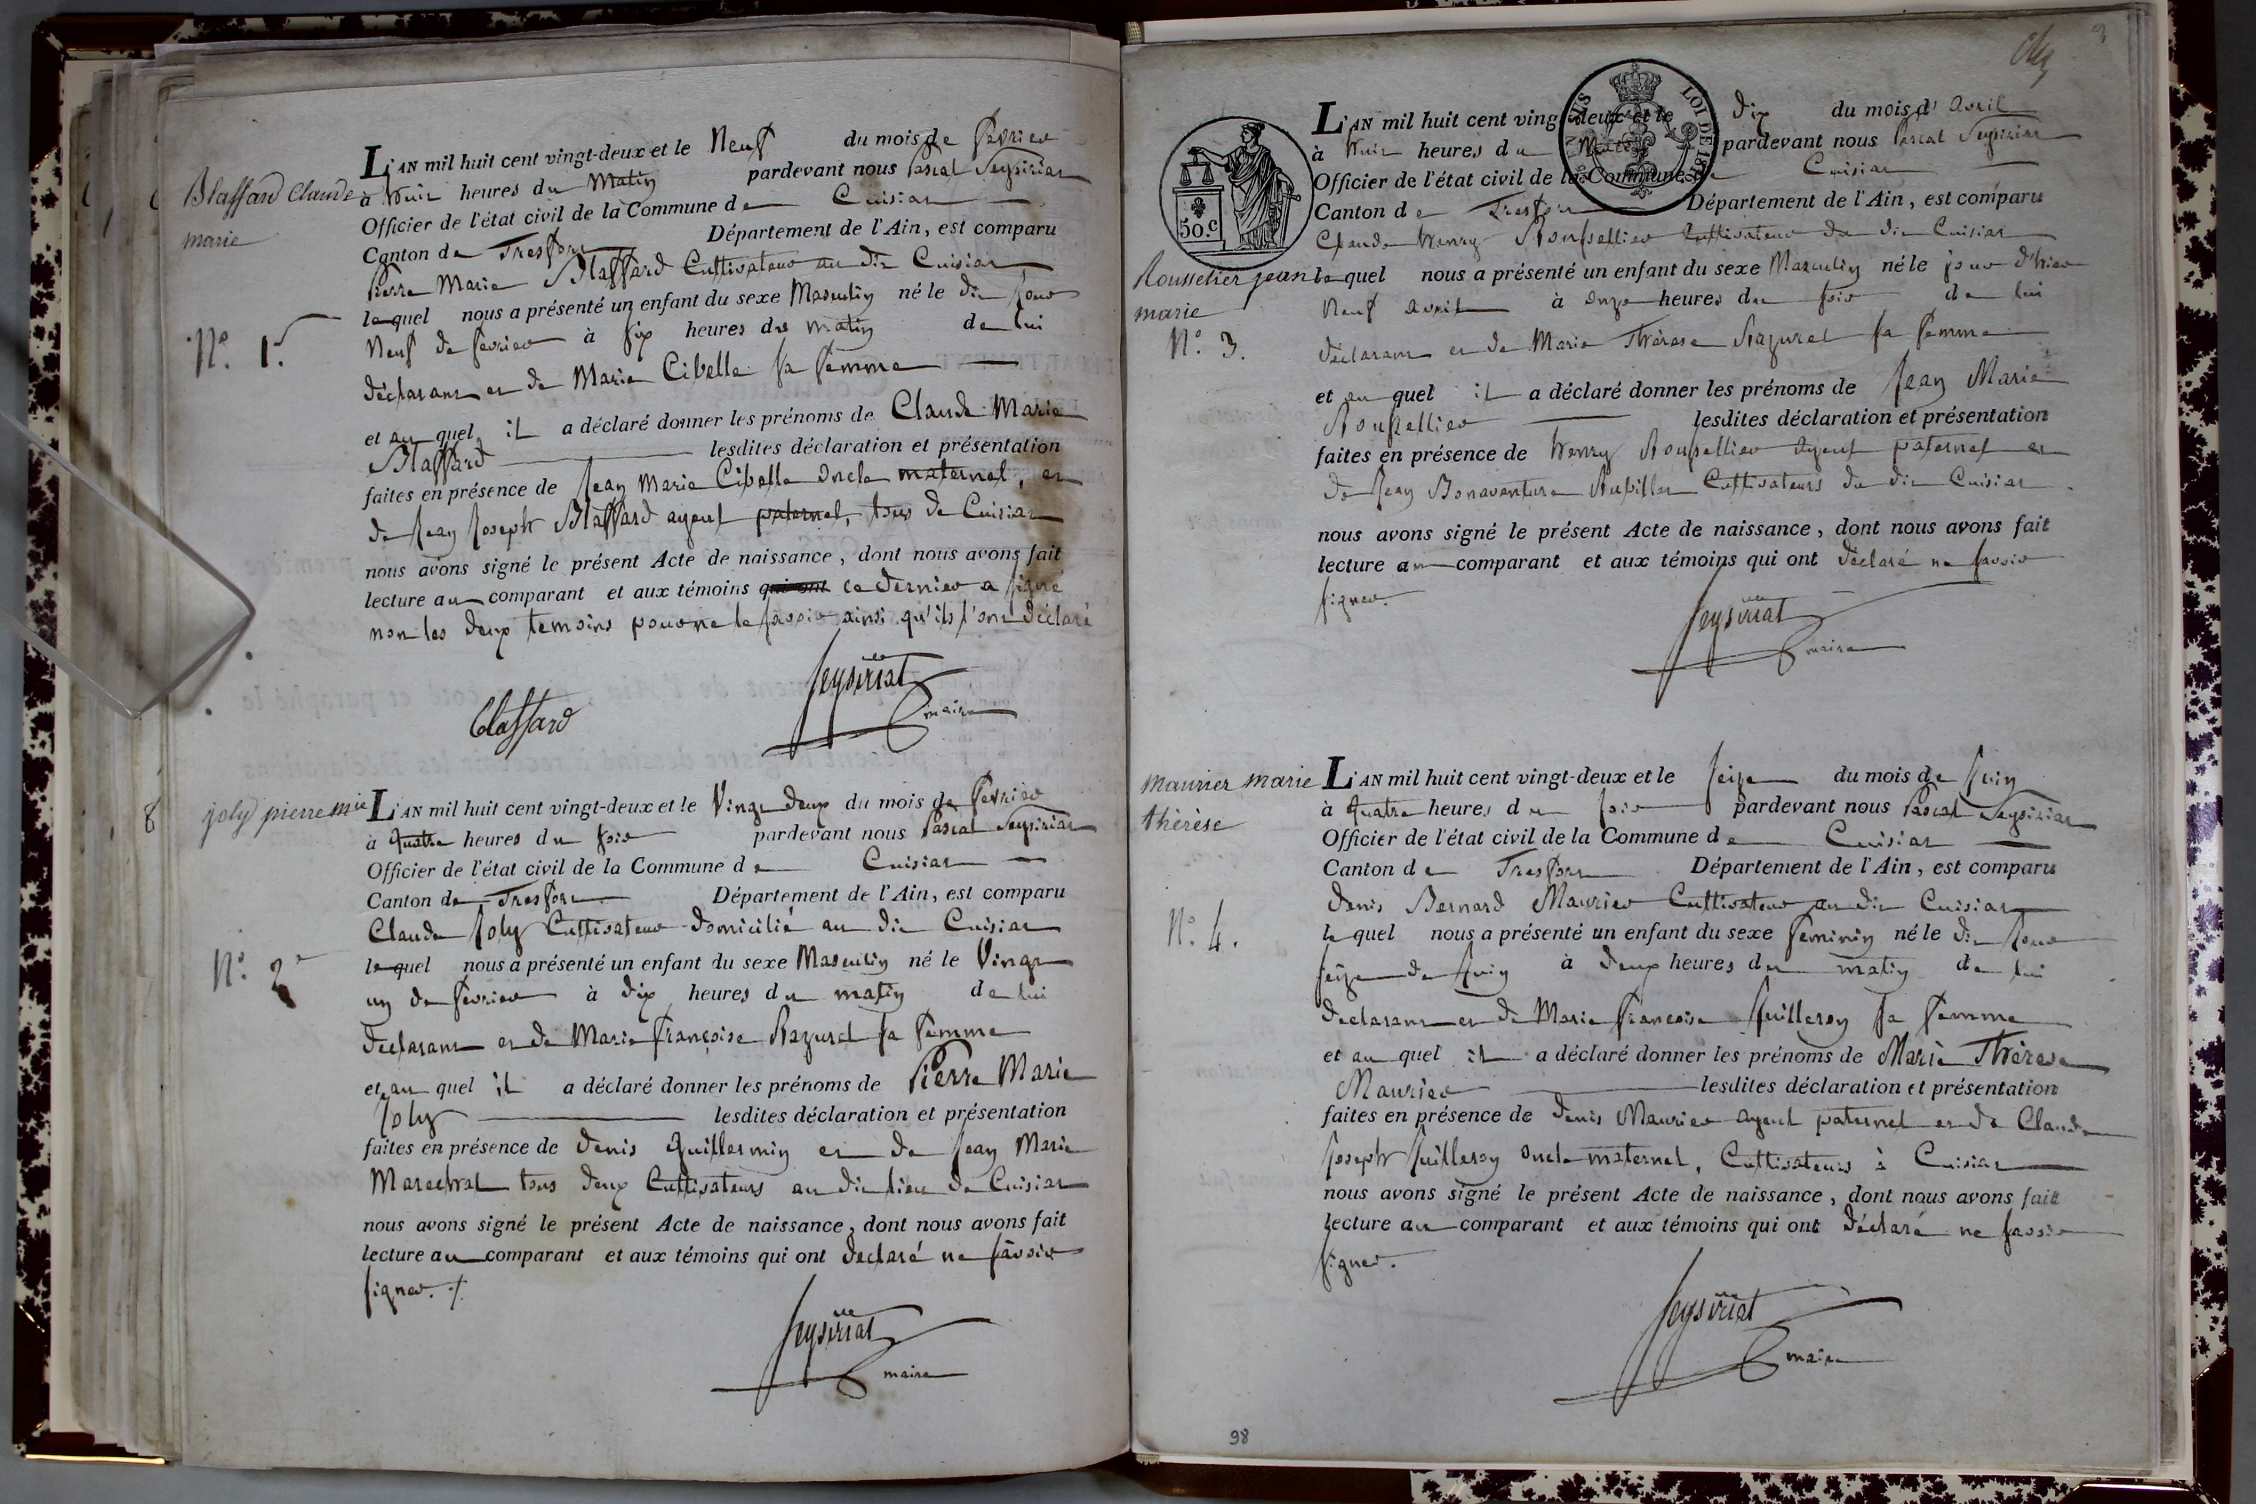 Blaffard Claude
marie
N.° 1.
L'AN mil huit cent vingt-deux et le Neuf du mois de fevrier
à huit heures du Matin pardevant nous Pascal Seysiriat
Officier de l'état civil de la Commune de Cuisiat
Canton de Tresfort Département de l'Ain, est comparu
Pierre Marie Blaffard Cultivateur au dit Cuisiat
lequel nous a présenté un enfant du sexe Masculin né le dit jour
Neuf de fevrier à six heures du matin de lui
déclarant et de Marie Cibelle sa femme
et au quel il a déclaré donner les prénoms de Claude Marie
Blaffard lesdites déclaration et présentation
faites en présence de Jean Marie Cibelle oncle maternel, et
de Jean Joseph Blaffard ayeul paternel, tous de Cuisiat
nous avons signé le présent Acte de naissance, dont nous avons fait
lecture au comparant et aux témoins qui ont ce dernier a signé
non les deux temoins pour ne le savoir ainsi qu'ils l'ont déclaré
Seysiriat
maire
Blaffard
8
joly pierre mie
N.° 2
L'AN mil huit cent vingt-deux et le Vingt deux du mois de fevrier
à quatre heures du soir pardevant nous Pascal Seysiriat
Officier de l'état civil de la Commune de Cuisiat
Canton de Tresfort Département de l'Ain, est comparu
Claude Joly Cultivateur domicilié au dit Cuisiat
lequel nous a présenté un enfant du sexe Masculin né le Vingt
un de fevrier à dix heures du matin de lui
déclarant et de Marie françoise Razurel sa femme
et au quel il a déclaré donner les prénoms de Pierre Marie
Joly lesdites déclaration et présentation
faites en présence de denis Guillermin et de Jean Marie
Marechal tous deux Cultivateurs au dit lieu de Cuisiat
nous avons signé le présent Acte de naissance, dont nous avons fait
lecture au comparant et aux témoins qui ont déclaré ne savoir
signer.
Seysiriat
maire
3
50.c
LOI DE 18
Rousselier jean
marie
N.° 3.
L'AN mil huit cent vingt-deux et le dix du mois d'avril
à huit heures du Matin pardevant nous Pascal Seysiriat
Officier de l'état civil de la Commune de Cuisiat
Canton de Tresfort Département de l'Ain, est comparu
Claude henry Rousselier Cultivateur du dit Cuisiat
lequel nous a présenté un enfant du sexe Masculin né le jour d'hier
Neuf avril à onze heures du soir de lui
déclarant et de Marie Thérese Razurel sa femme
et au quel il a déclaré donner les prénoms de Jean Marie
Rousellier lesdites déclaration et présentation
faites en présence de henry Rousellier ayeul paternel et
de Jean Bonaventure Cultivateurs du dit Cuisiat
nous avons signé le présent Acte de naissance, dont nous avons fait
lecture au comparant et aux témoins qui ont déclaré ne savoir
signer.
Seysiriat
maire
maurier marie
thérèse
N.° 4.
L'AN mil huit cent vingt-deux et le seize du mois de Juin
à quatre heures du soir pardevant nous Pascal Seysiriat
Officier de l'état civil de la Commune de Cuisiat
Canton de Tresfort Département de l'Ain, est comparu
denis Bernard Maurier Cultivateur au dit Cuisiat
le quel nous a présenté un enfant du sexe féminin né le dit jour
seize de Juin à deux heures du matin de lui
déclarant et de Marie francoise Juilleron sa femme
et au quel il a déclaré donner les prénoms de Marie Thérese
Maurier lesdites déclaration et présentation
faites en présence de denis Maurier ayeul paternel et de Claude
Joseph Juilleron oncle maternel, Cultivateurs à Cuisiat
nous avons signé le présent Acte de naissance, dont nous avons fait
lecture au comparant et aux témoins qui ont déclaré ne savoir
signer.
Seysiriat
maire
98